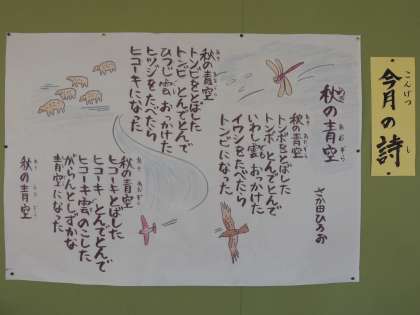 こんげつ し
今月の詩
あき あおぞら
秋の青空
さか田ひろお
あき あおぞら
秋の青空
トンボをとばした
トンボ とんでとんで
いわし雲 おっかけた
イワシをたべたら
トンビになった
あき あおぞら
秋の青空
トンビをとばした
トンビ とんでとんで
ひつじ雲 おっかけた
ヒツジをたべたら
ヒコーキになった
あき あおぞら
秋の青空
ヒコーキとばした
ヒコーキ とんでとんで
ヒコーキ雲のこした
がらんとしずかな
青空になった
あき あおぞら
秋の青空